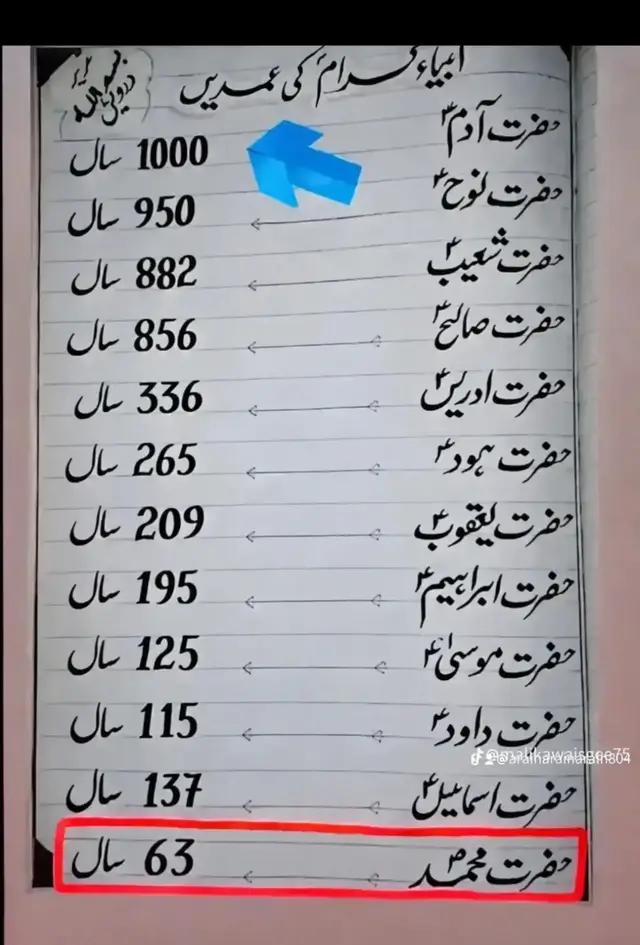 انبیاء کرامؑ کی عمریں
بسم اللہ
حضرت آدمؑ 1000 سال
حضرت نوحؑ 950 سال
حضرت شعیبؑ 882 سال
حضرت صالحؑ 856 سال
حضرت ادریسؑ 336 سال
حضرت ہودؑ 265 سال
حضرت یعقوبؑ 209 سال
حضرت ابراہیمؑ 195 سال
حضرت موسیٰؑ 125 سال
حضرت داودؑ 115 سال
@malikawaisgee75
حضرت اسماعیلؑ 137 سال
حضرت محمدؐ 63 سال